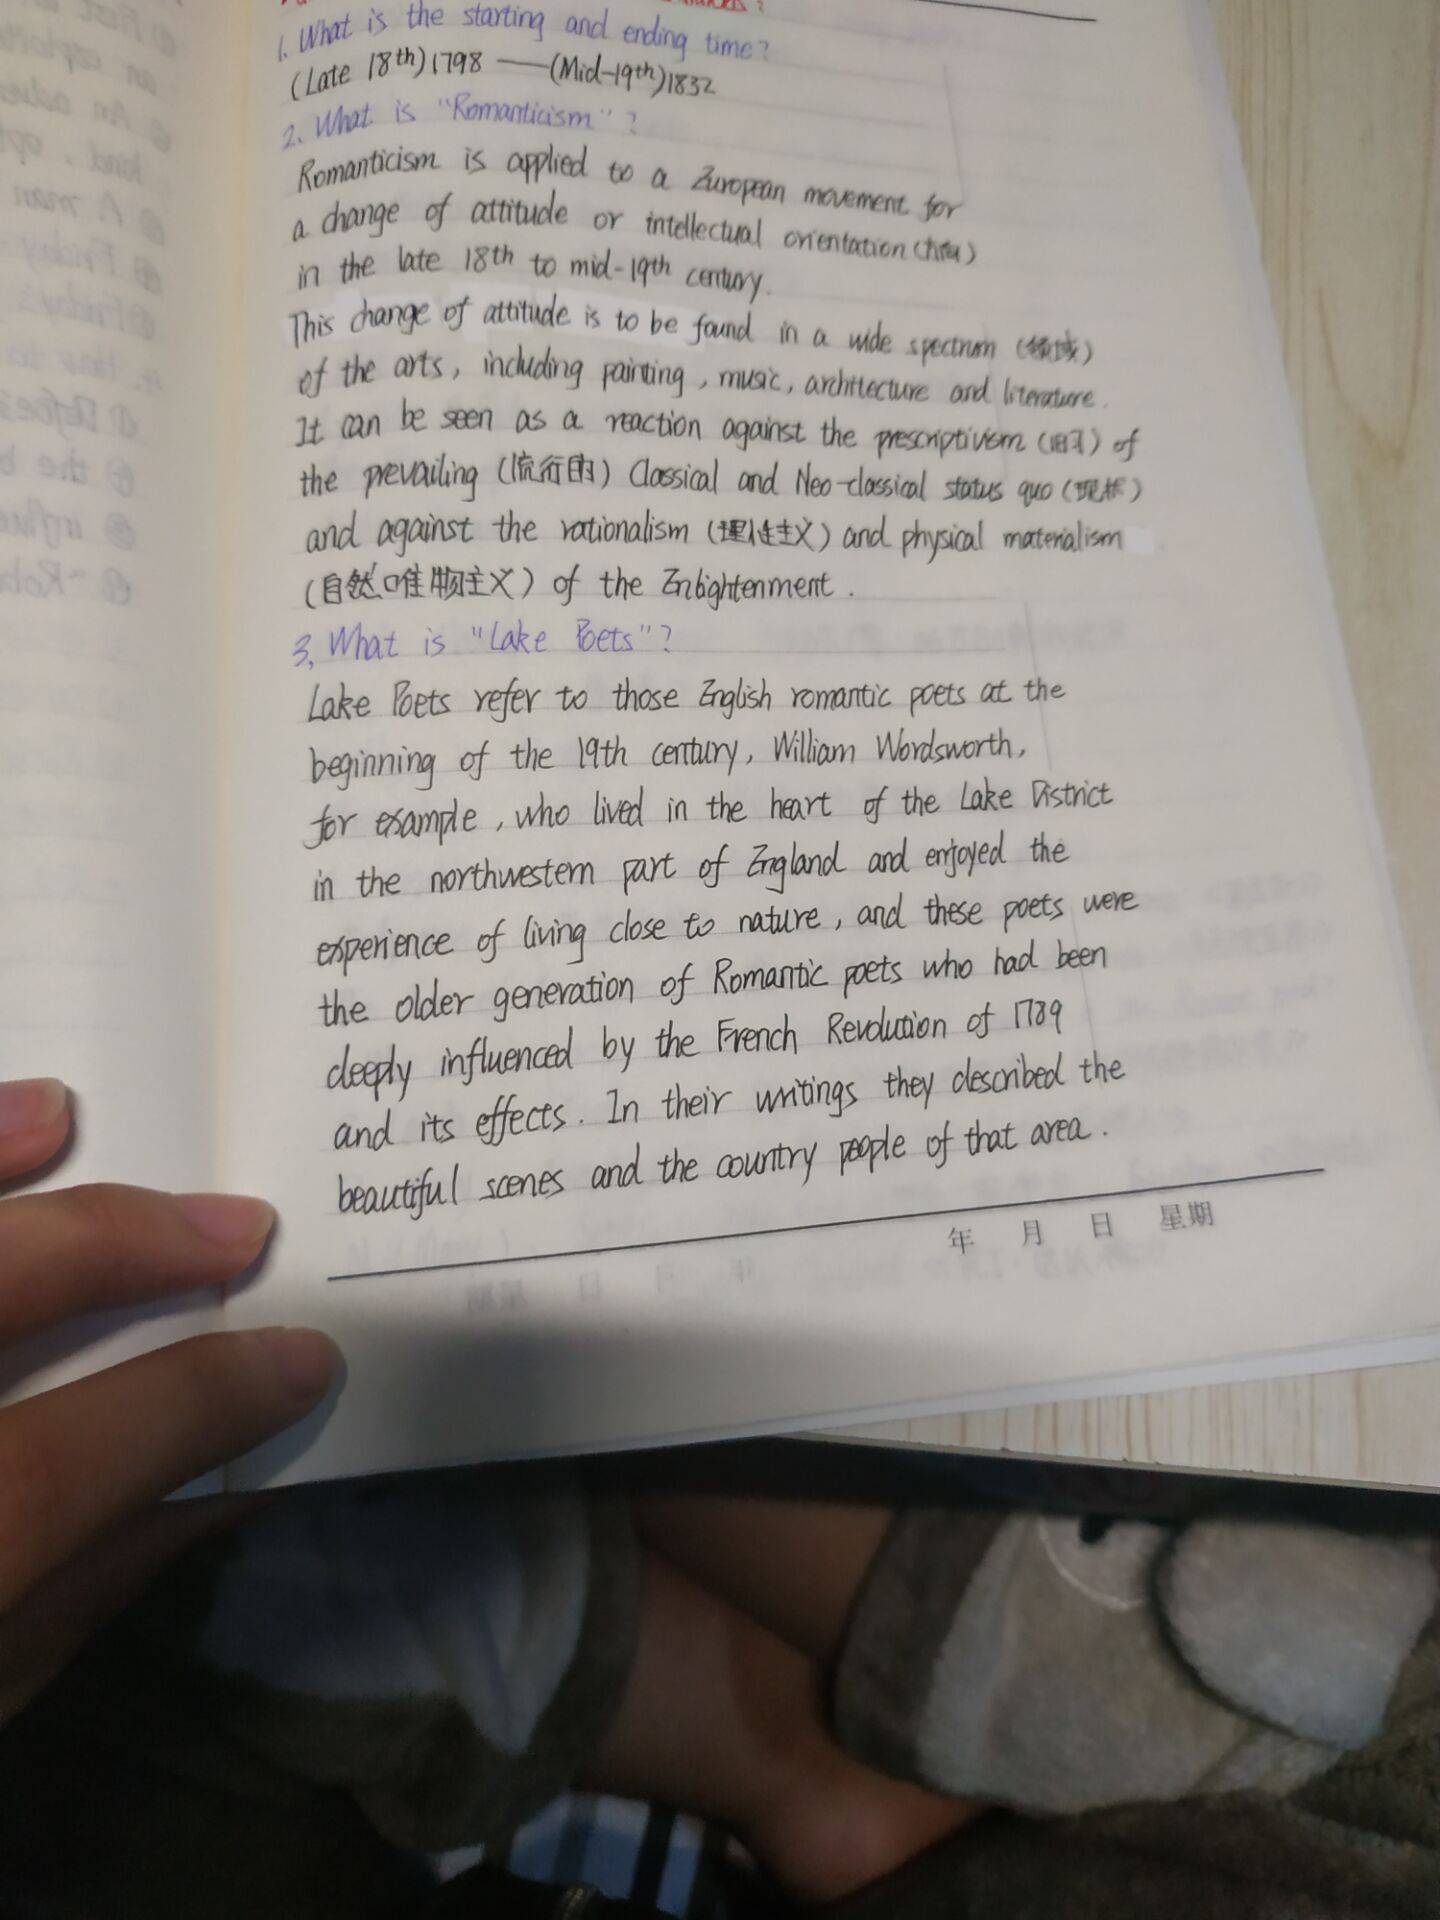 1. What is the starting and ending time?
(Late 18th)1798 —(Mid-19th)1832
2. What is "Romanticism"?
Romanticism is applied to a European movement for
a change of attitude or intellectual orientation
in the late 18th to mid-19th century.
This change of attitude is to be found in a wide spectrum (领域)
of the arts, including painting, music, architecture and literature.
It can be seen as a reaction against the prescriptivism (旧习) of
the prevailing (流行的) Classical and Neo-classical status quo (现状)
and against the rationalism (理性主义) and physical materialism
(自然唯物主义) of the Enlightenment.
3. What is "Lake Poets"?
Lake Poets refer to those English romantic poets at the
beginning of the 19th century, William Wordsworth,
for example, who lived in the heart of the Lake District
in the northwestern part of England and enjoyed the
experience of living close to nature, and these poets were
the older generation of Romantic poets who had been
deeply influenced by the French Revolution of 1789
and its effects. In their writings they described the
beautiful scenes and the country people of that area.
年 月 日 星期